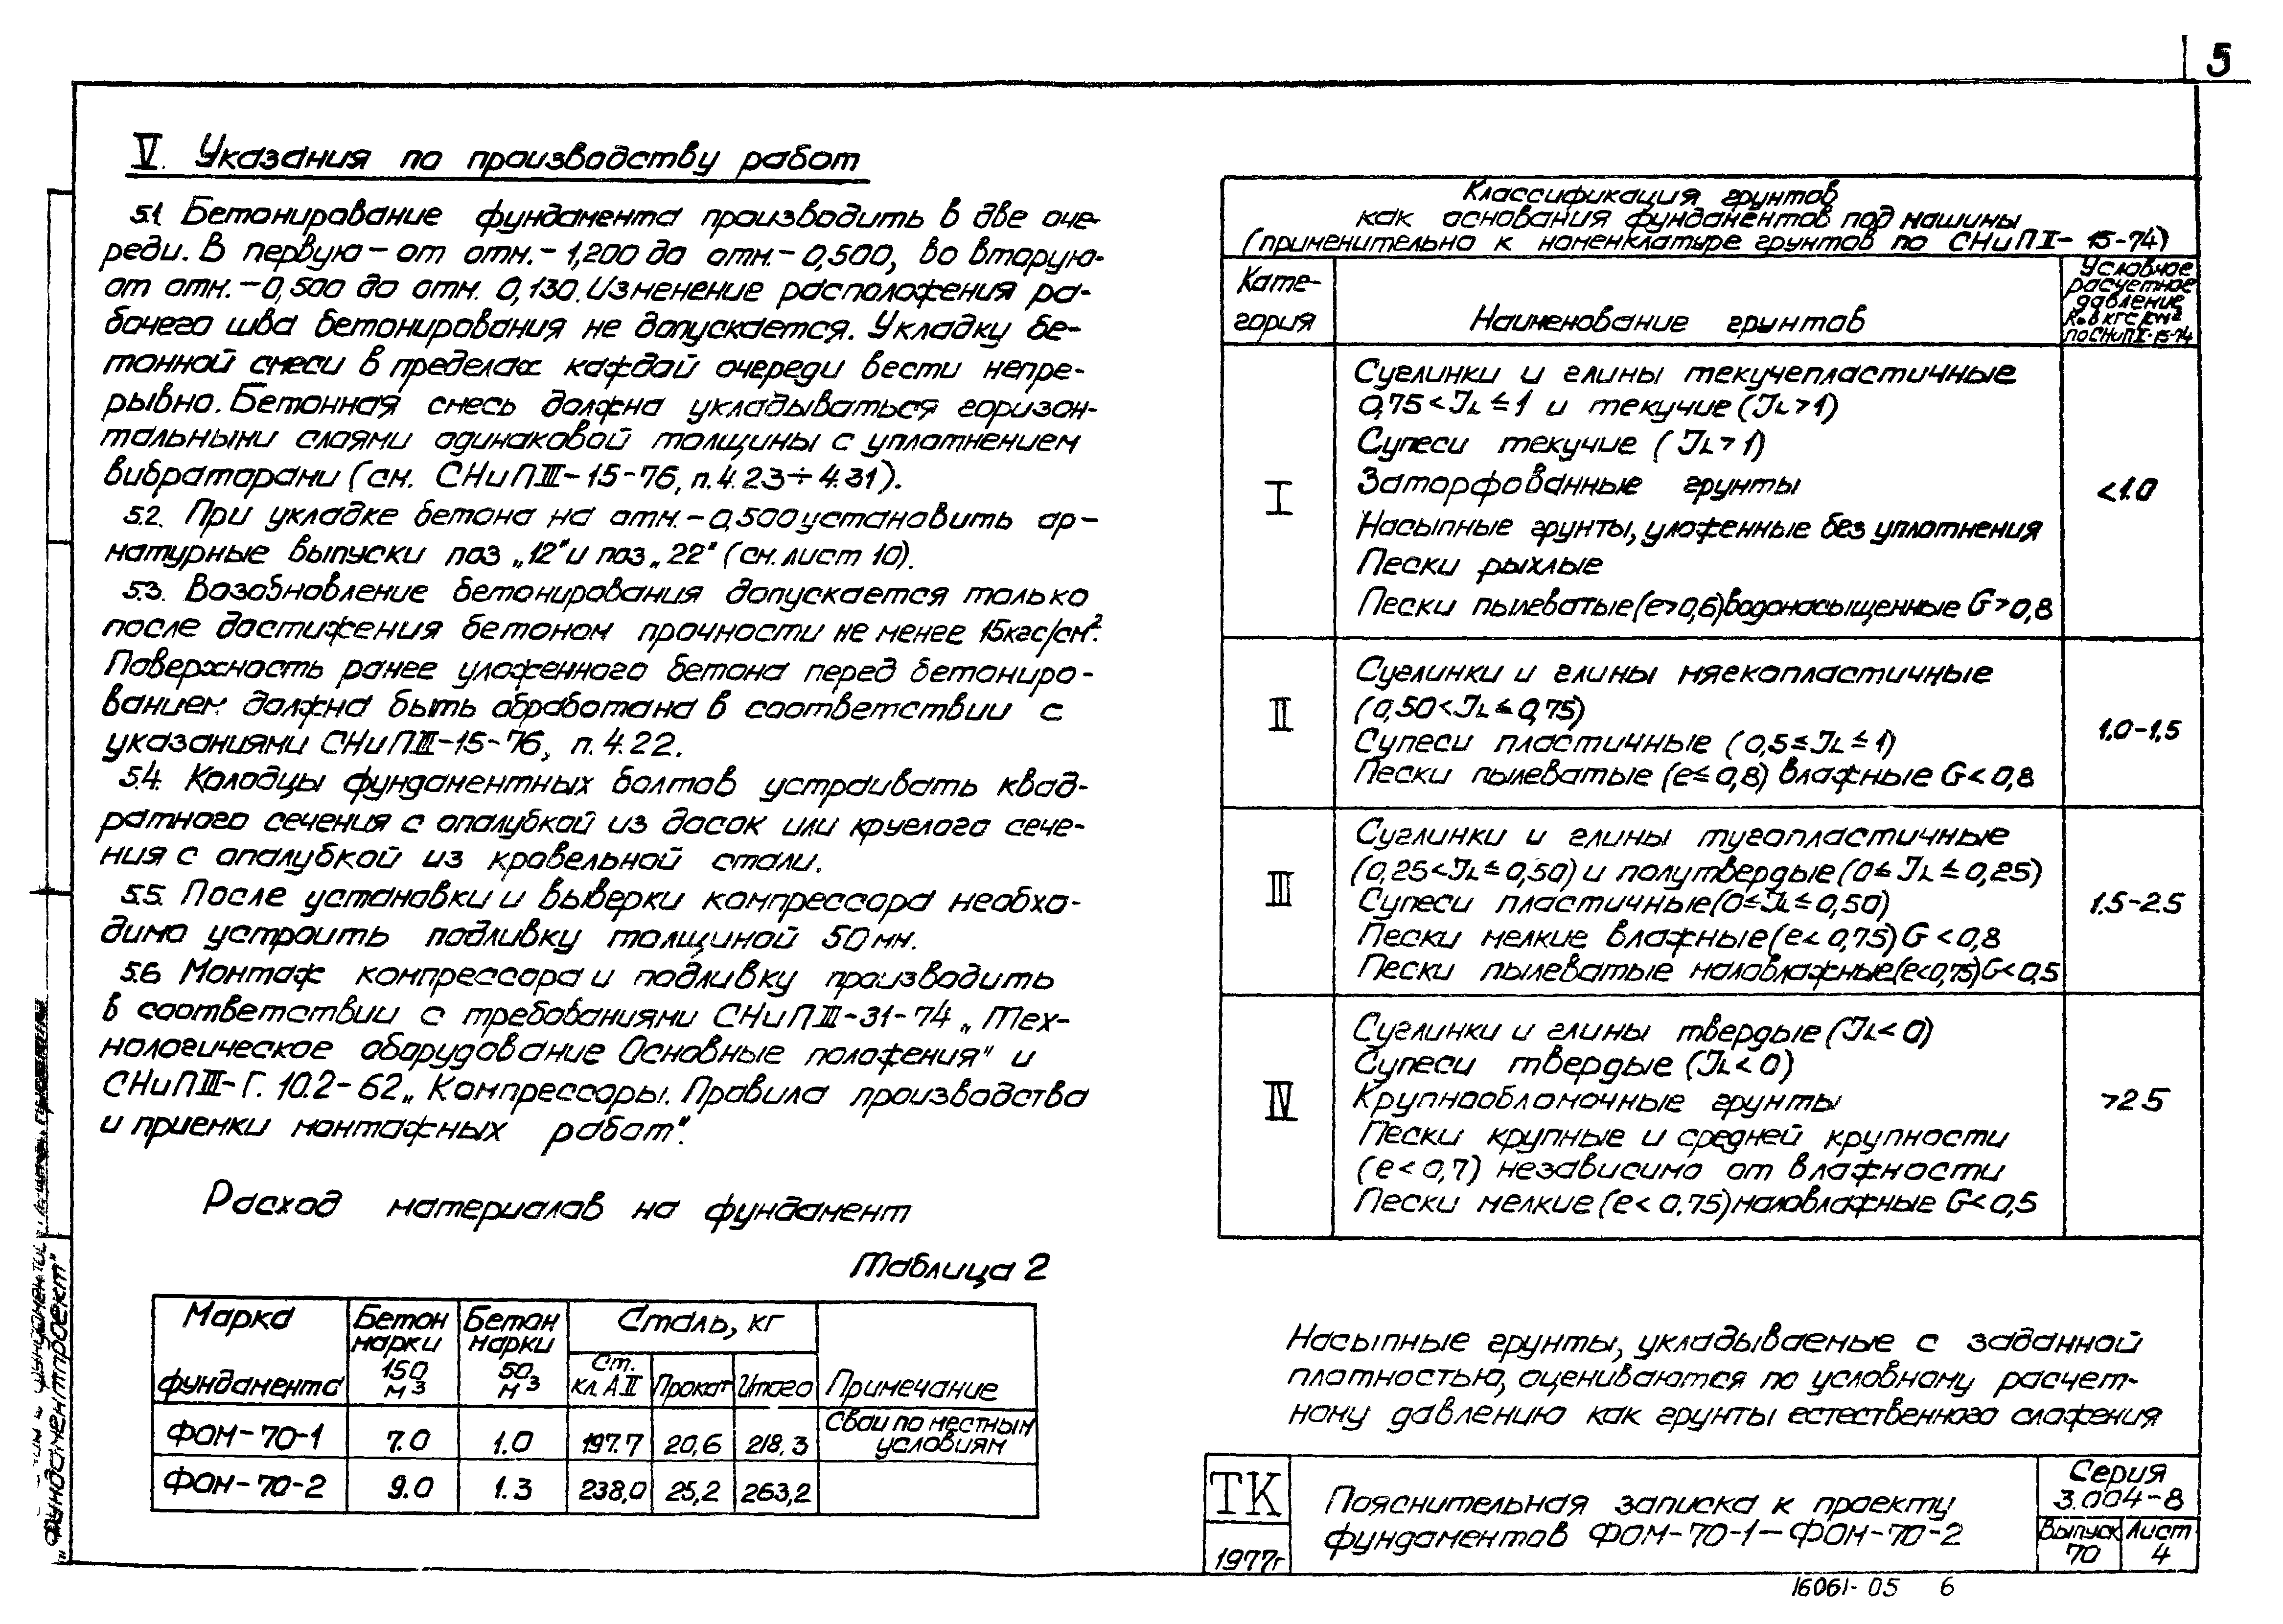 5
V. Указания по производству работ
5.1. Бетонирование фундамента производить в две оче-
реди. В первую – от отм. – 1,200 до отм. – 0,500, во вторую-
от отм. – 0,500 до отм. 0,130. Изменение расположения ра-
бочего шва бетонирования не допускается. Укладку бе-
тонной смеси в пределах каждой очереди вести непре-
рывно. Бетонная смесь должна укладываться горизон-
тальными слоями одинаковой толщины с уплотнением
вибраторами (см. СНиП III-15-76, п.4.23÷4.31).
5.2. При укладке бетона на отм. – 0,500 установить ар-
матурные выпуски поз „12" и поз „22" (см. лист 10).
5.3. Возобновление бетонирования допускается только
после достижения бетоном прочности не менее 15кгс/см².
Поверхность ранее уложенного бетона перед бетониро-
ванием должна быть обработана в соответствии с
указаниями СНиП III-15-76, п.4.22.
5.4. Колодцы фундаментных болтов устраивать квад-
ратного сечения с опалубкой из досок или круглого сече-
ния с опалубкой из кровельной стали.
5.5. После установки и выверки компрессора необхо-
димо устроить подливку толщиной 50мм.
5.6 Монтаж компрессора и подливку производить
в соответствии с требованиями СНиП III-31-74 „Тех-
нологическое оборудование Основные положения" и
СНиП III-Г. 10.2-62 „Компрессоры. Правила производства
и приемки монтажных работ".
Расход материалов на фундамент
Таблица 2
Марка фундамента
Бетон марки 150 м³
Бетон марки 50 м³
Сталь, кг
Ст. кл. АII
Прокат
Итого
Примечание
ФОМ-70-1 7.0 1.0 197.7 20,6 218,3 Сваи по местным условиям
ФОМ-70-2 9.0 1.3 238,0 25,2 263,2
Классификация грунтов
как основания фундаментов под машины
(применительно к номенклатуре грунтов по СНиП II-15-74)
Кате-
гория
Наименование грунтов
Условное
расчетное
давление
R₀ в кгс/см²
по СНиП II-15-74
I
Суглинки и глины текучепластичные
0,75<JL≤1 и текучие (JL>1)
Супеси текучие (JL>1)
Заторфованные грунты
Насыпные грунты, уложенные без уплотнения
Пески рыхлые
Пески пылеватые (e>0,6) водонасыщенные G>0,8
<1.0
II
Суглинки и глины мягкопластичные
(0,50<JL≤0,75)
Супеси пластичные (0,5≤JL≤1)
Пески пылеватые (e≤0,8) влажные G<0,8
1.0-1,5
III
Суглинки и глины тугопластичные
(0,25<JL≤0,50) и полутвердые (0≤JL≤0,25)
Супеси пластичные (0≤JL≤0,50)
Пески мелкие влажные (e<0,75) G<0,8
Пески пылеватые маловлажные (e<0,75) G<0,5
1.5-2.5
IV
Суглинки и глины твердые (JL<0)
Супеси твердые (JL<0)
Крупнообломочные грунты
Пески крупные и средней крупности
(e<0,7) независимо от влажности
Пески мелкие (e<0.75) маловлажные G<0,5
>2.5
Насыпные грунты, укладываемые с заданной
плотностью, оцениваются по условному расчет-
ному давлению как грунты естественного сложения
ТК
1977г
Пояснительная записка к проекту
фундаментов ФОМ-70-1 – ФОМ-70-2
Серия
3.004-8
Выпуск
70
Лист
4
16061-05 6
„Фундаментпроект"